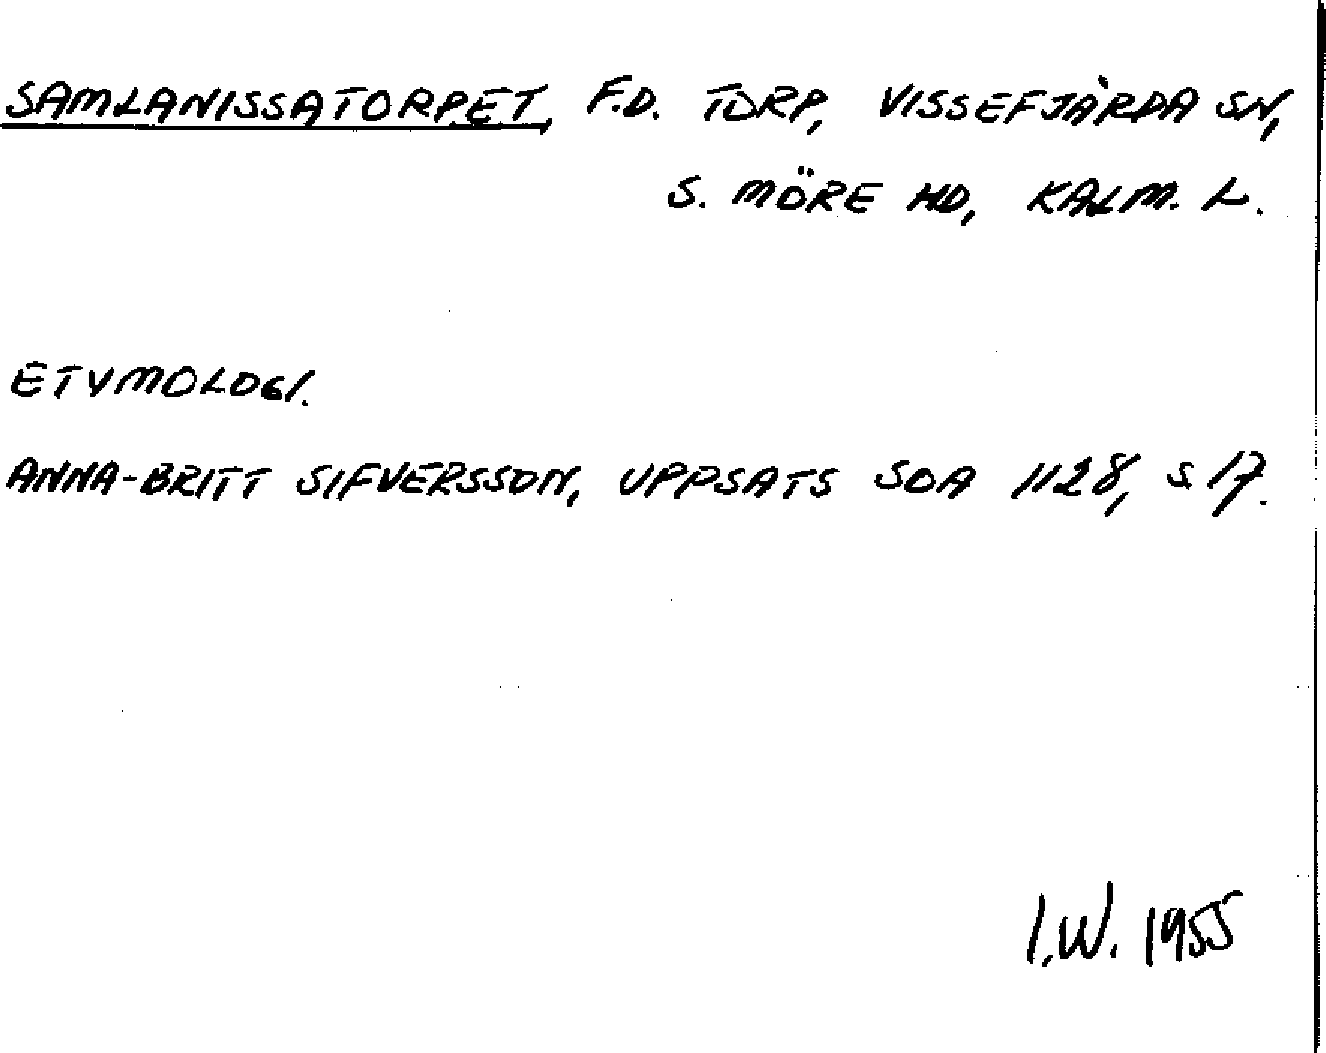 SAMLANISSATORPET, F.D. TORP, VISSEFJÄRDA SN,
S. MÖRE HD, KALM. L.
ETYMOLOGI.
ANNA-BRITT SIFVERSSON, UPPSATS SOA 1128, S 17.
I.W. 1955